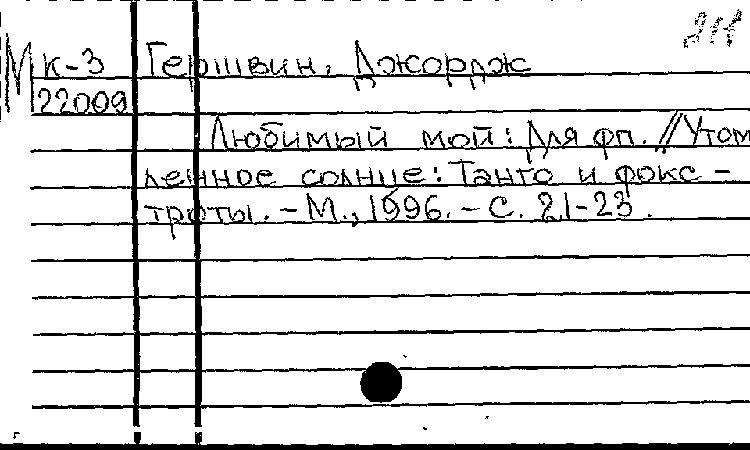 М к-3 Гершвин, Джордж
22009
Любимый мой: Для фп. // Утом
ленное солнце: Танго и фокс -
троты. - М., 1996. - С. 21-23.